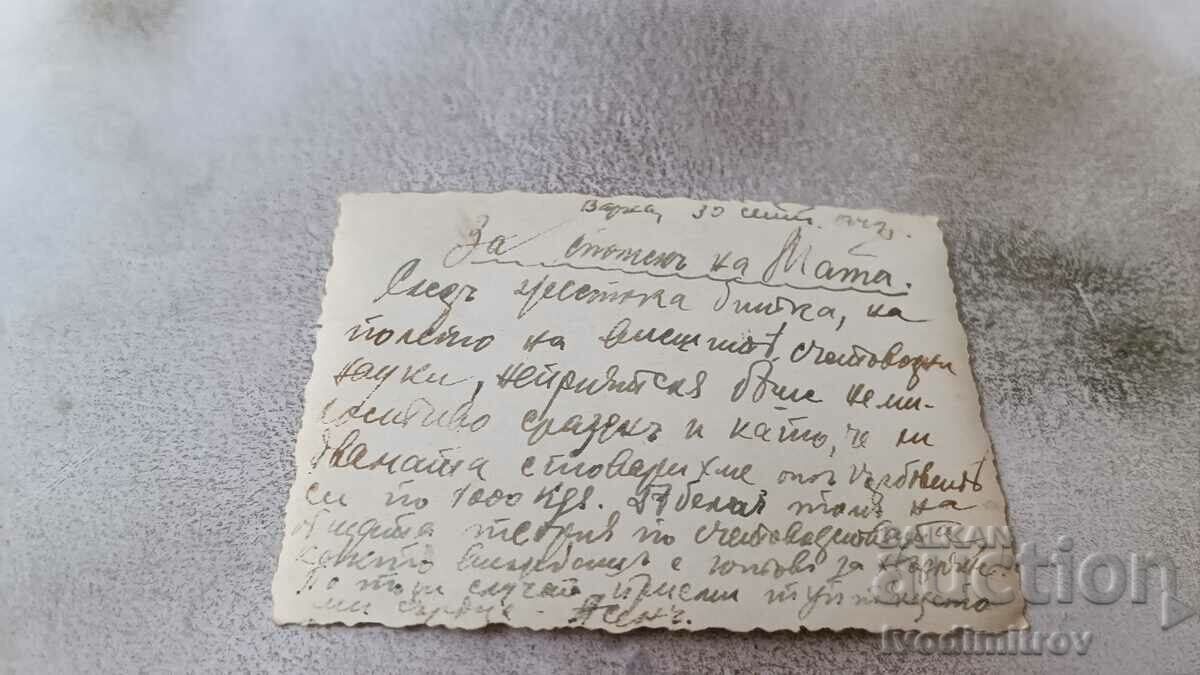 Варна, 30 септ. 1942
За споменъ на Мата.
Следъ жестока битка, на
полето на висшитѣ счетоводни
науки, неприятеля бѣше неми-
лостиво сразенъ и като, че ли
двамата стоварихме отъ гърбоветѣ
си по 1000 кгр. томъ на
общата теория по счетоводството
която е готова за
По този случай приеми туптящето
ми сърце. Асенъ.
BALKAN
auction
ivodimitrov